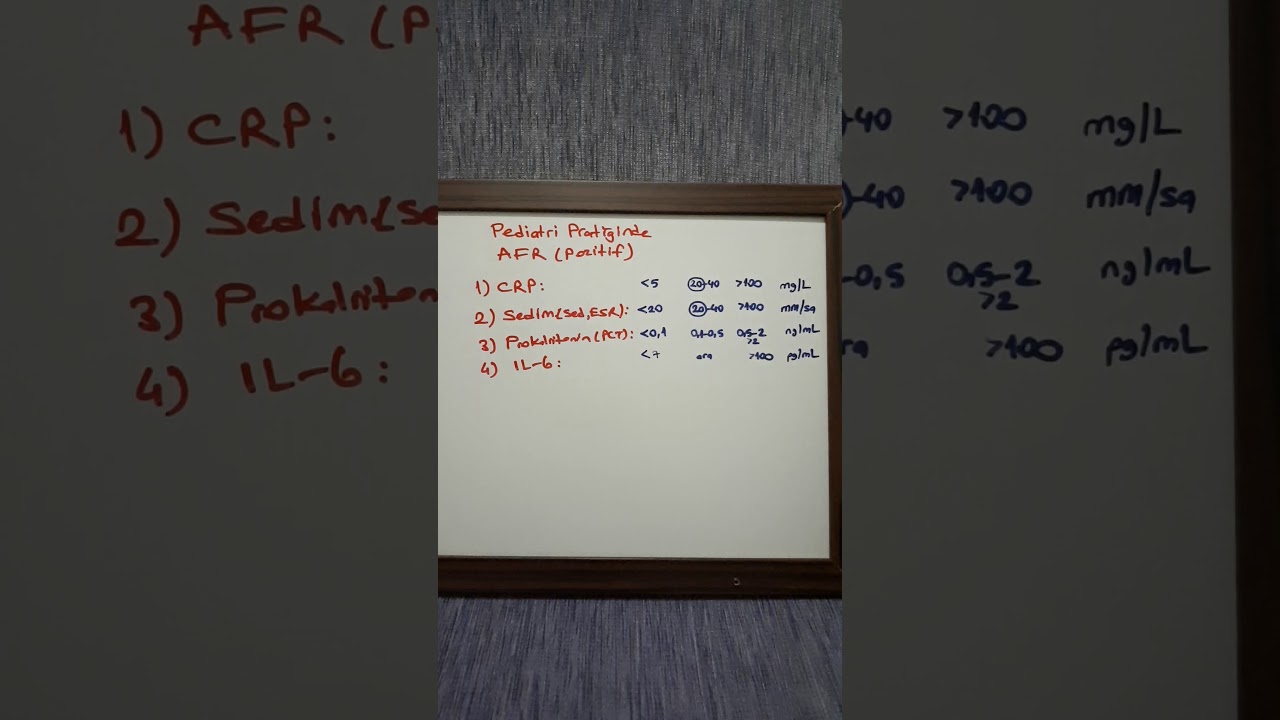 Pediatri Pratiğinde
AFR (Pozitif)
1) CRP: <5 20-40 >100 mg/L
2) Sedim(Sed,ESR): <20 20-40 >100 mm/sa
3) Prokalsitonin(PCT): <0,1 0,1-0,5 0,5-2 ng/mL
>2
4) IL-6: <7 ara >100 pg/mL
AFR (P
1) CRP: -40 >100 mg/L
2) Sedim(Se -40 >100 mm/sa
3) -0,5 0,5-2 ng/mL
>2
4) IL-6: ra >100 pg/mL